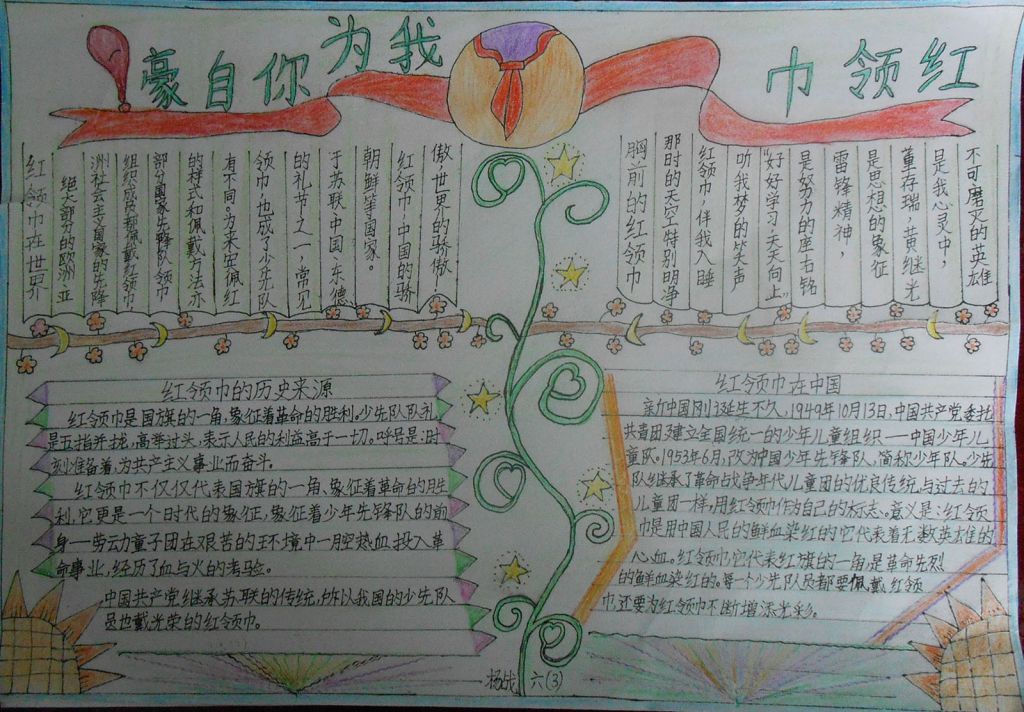 红领巾我为你自豪
红领巾在世界
绝大部分的欧洲、亚
洲社会主义国家的先锋
组织成员都佩戴红领巾,
部分国家先锋队领巾
的样式和佩戴方法亦
有不同。为来宾佩红
领巾也成了少先队
的礼节之一,常见
于苏联、中国、东德、
朝鲜等国家。
红领巾,中国的骄
傲!世界的骄傲!
胸前的红领巾
那时的天空特别明净
红领巾,伴我入睡
听我梦的笑声
“好好学习,天天向上”
是努力的座右铭
雷锋精神,
是思想的象征
董存瑞,黄继光
是我心灵中,
不可磨灭的英雄
红领巾的历史来源
红领巾是国旗的一角,象征着革命的胜利。少先队队礼
是五指并拢,高举过头,表示人民的利益高于一切。呼号是:时
刻准备着,为共产主义事业而奋斗。
红领巾不仅仅代表国旗的一角、象征着革命的胜
利,它更是一个时代的象征,象征着少年先锋队的前
身—劳动童子团在艰苦的环境中一腔热血投入革
命事业,经历了血与火的考验。
中国共产党继承苏联的传统,所以我国的少先队
员也戴光荣的红领巾。
红领巾在中国
新中国刚诞生不久,1949年10月13日,中国共产党委托
共青团建立全国统一的少年儿童组织——中国少年儿
童队。1953年6月,改为中国少年先锋队,简称少年队。少先
队继承了革命战争年代儿童团的优良传统,与过去的
儿童团一样,用红领巾作为自己的标志。意义是:红领
巾是用中国人民的鲜血染红的它代表着无数英雄的
心血。红领巾,它代表红旗的一角,是革命先烈
的鲜血染红的。每一个少先队员都要佩戴红领
巾,还要为红领巾不断增添光彩。
六(3)